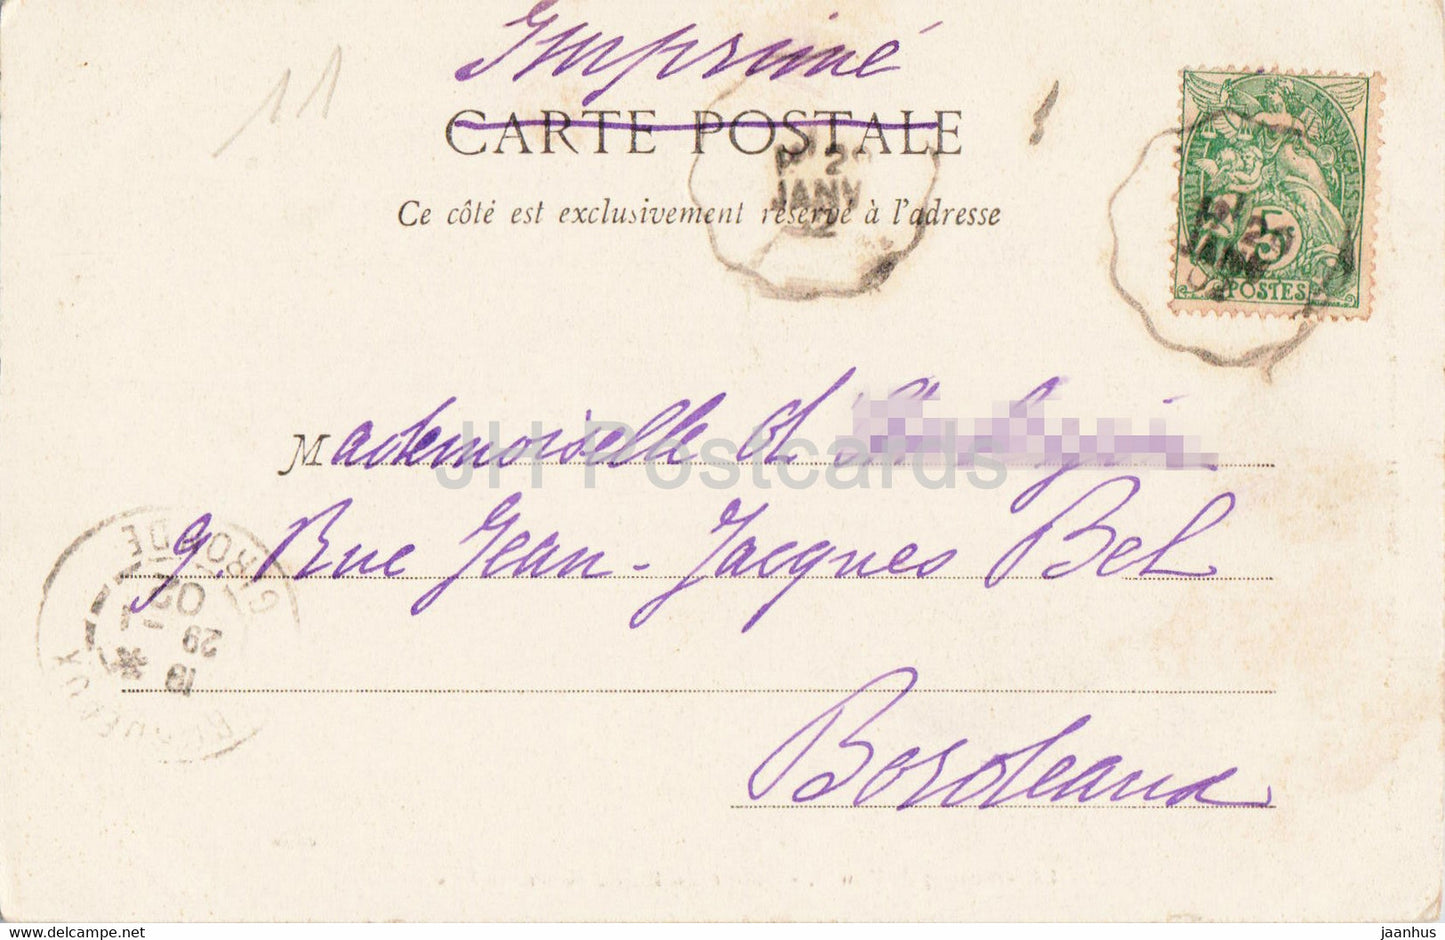 11
Imprimé
CARTE POSTALE
Ce côté est exclusivement réservé à l'adresse
29
JANV
02
5
POSTES
Mademoiselle
9. Rue Jean-Jacques Bel
Bordeaux
BORDEAUX GIRONDE
29 - 1
02
JH Postcards
jaanhus